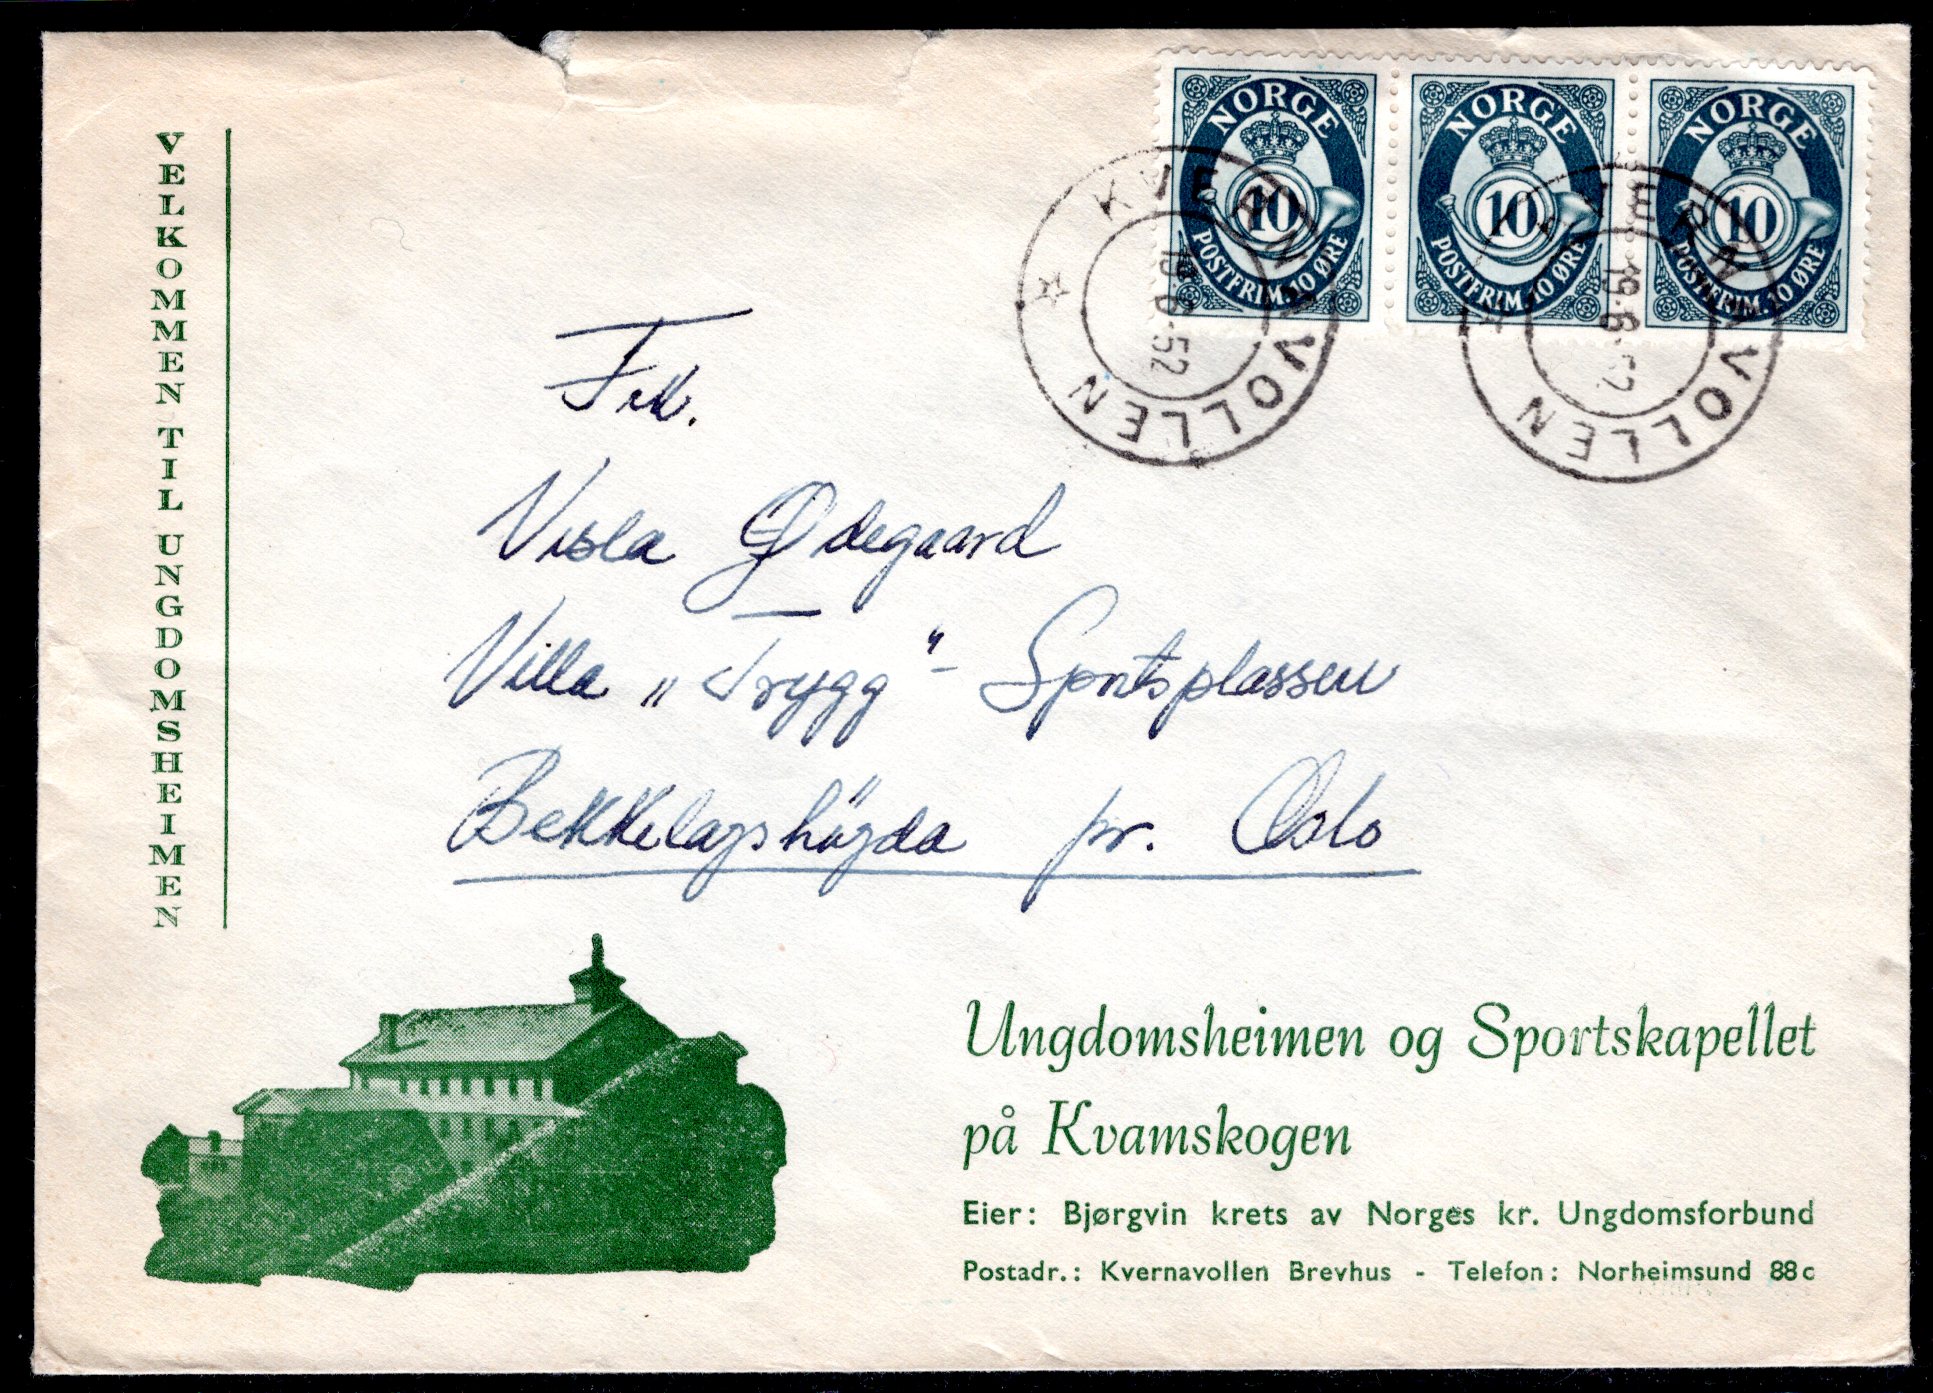 VELKOMMEN TIL UNGDOMSHEIMEN
NORGE 10 POSTFRIM. 10 ØRE
NORGE 10 POSTFRIM. 10 ØRE
NORGE 10 POSTFRIM. 10 ØRE
KVERNAVOLLEN
19.6.52
KVERNAVOLLEN
19.6.52
Frk.
Visla Ødegaard
Villa „Trygg" - Sportsplassen
Bekkelagshögda pr. Oslo
Ungdomsheimen og Sportskapellet
på Kvamskogen
Eier: Bjørgvin krets av Norges kr. Ungdomsforbund
Postadr.: Kvernavollen Brevhus - Telefon: Norheimsund 88c